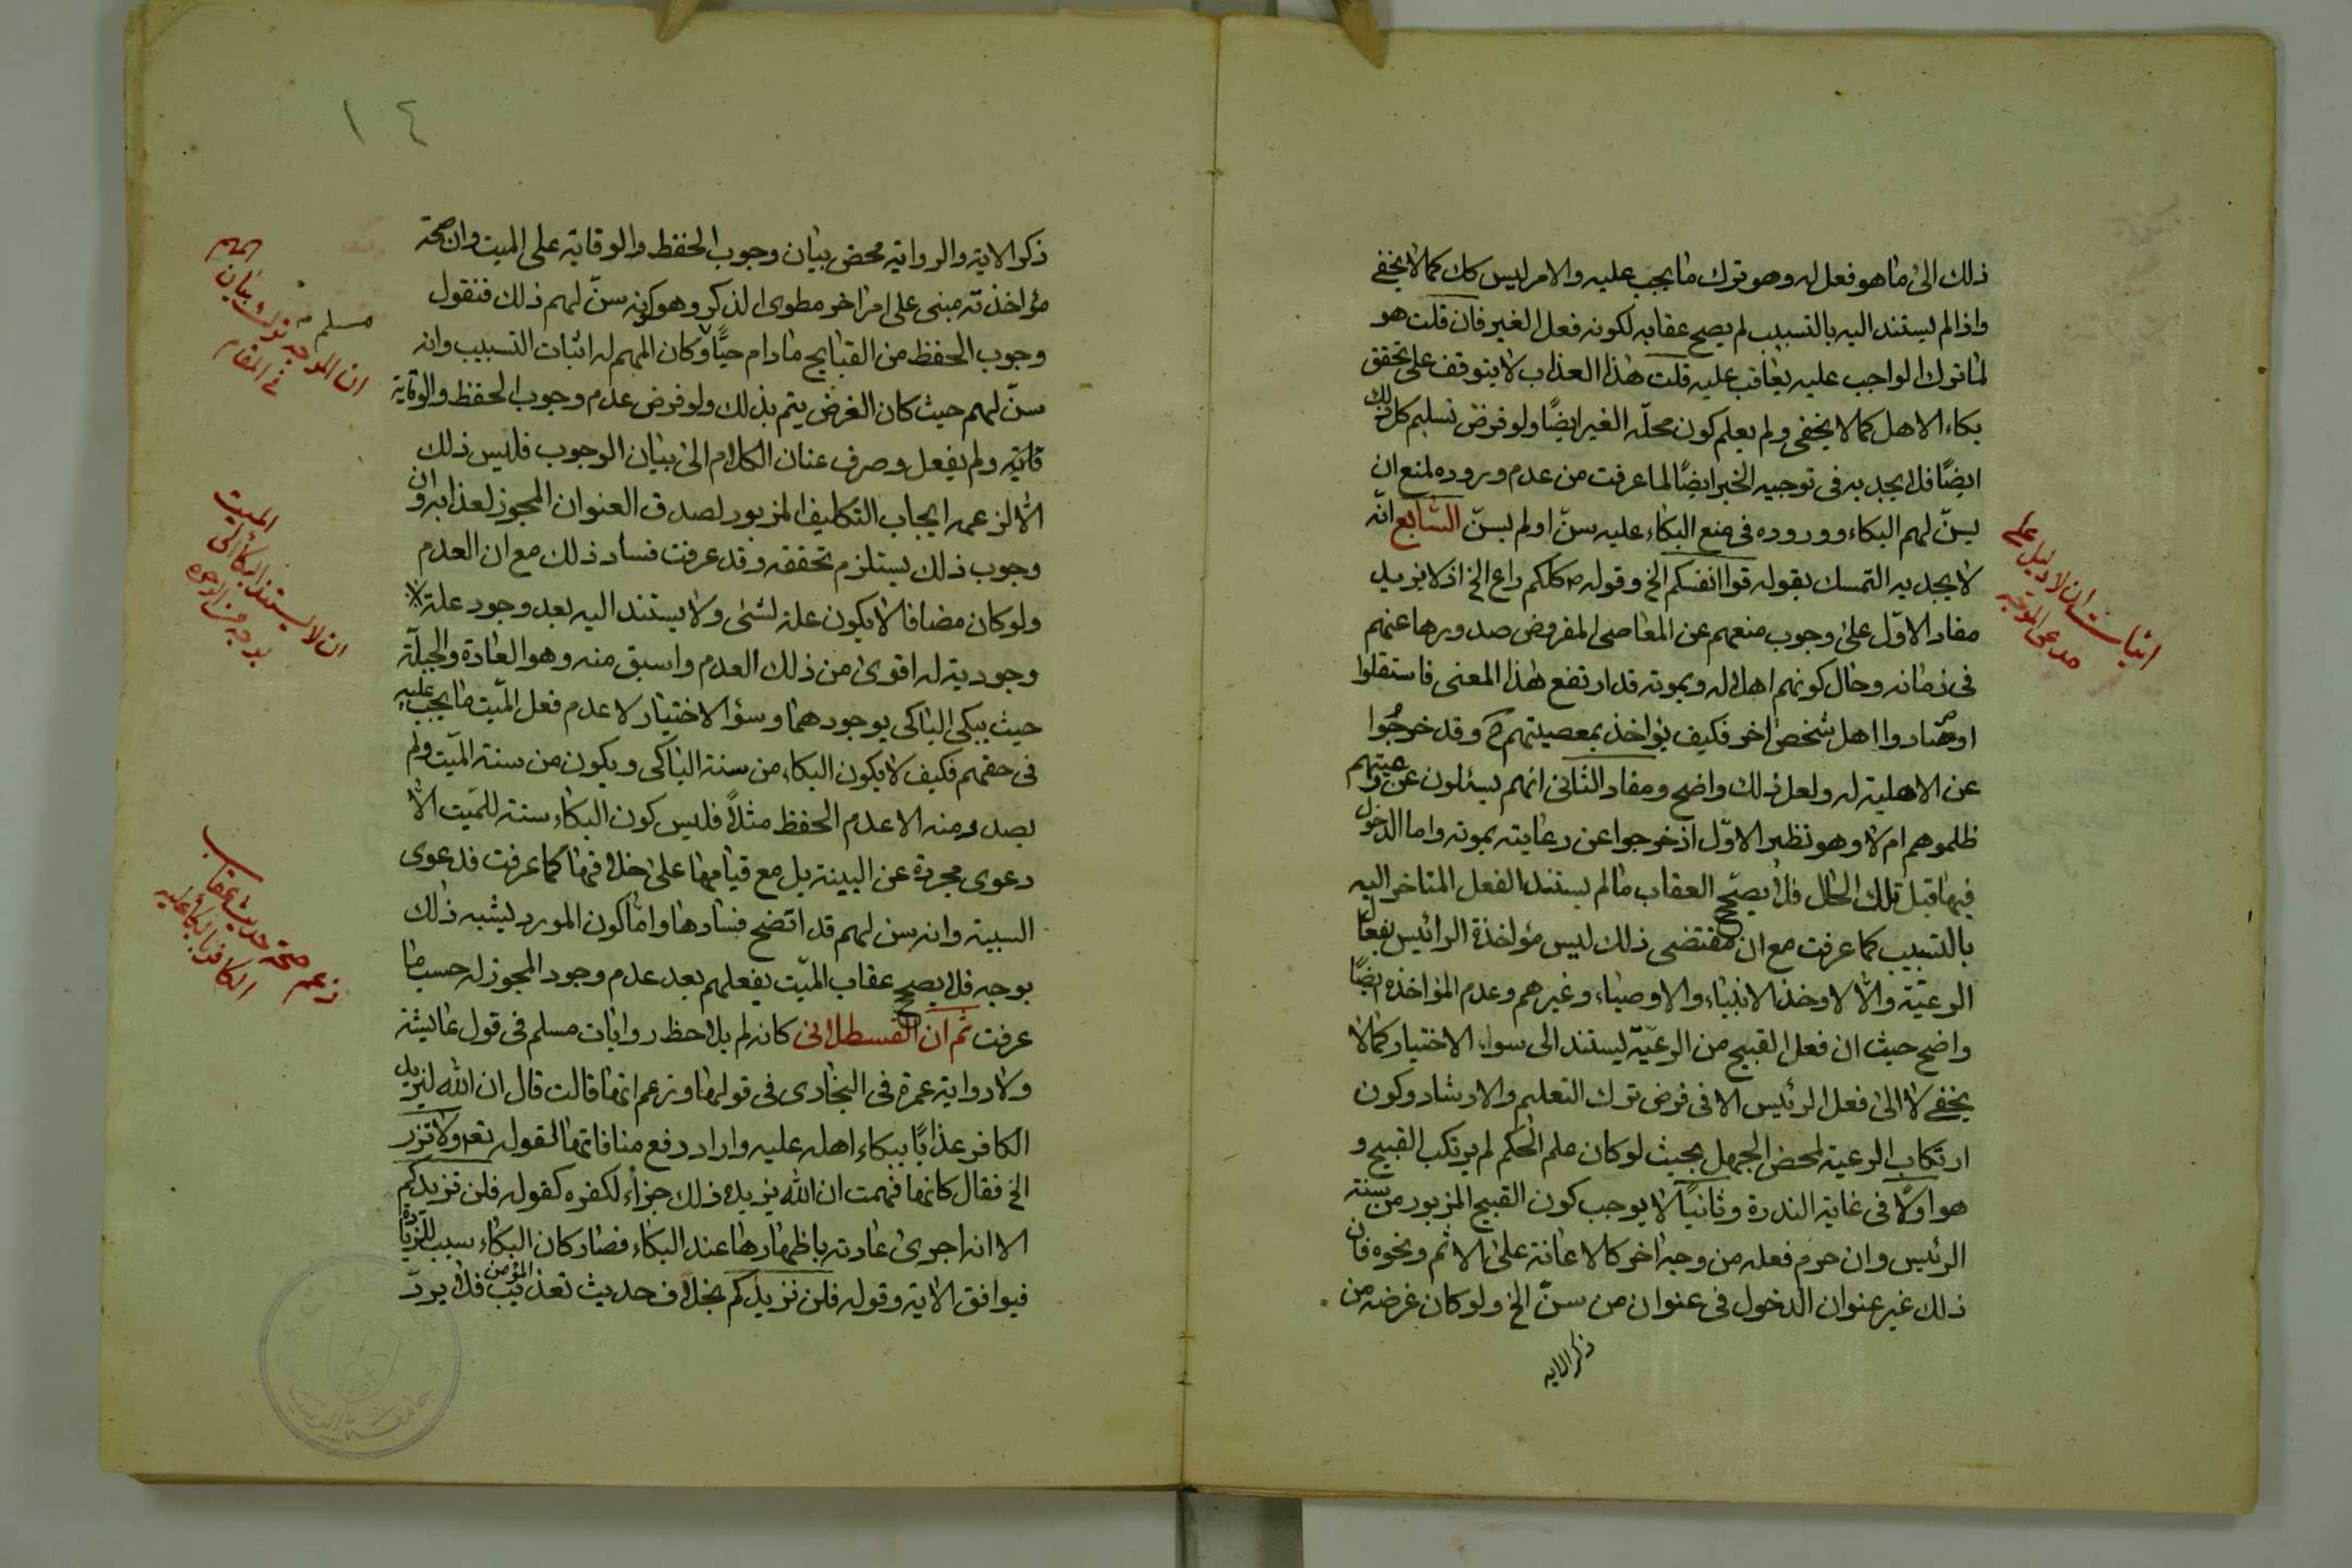 ذلك الى ما هو فعل له وهو ترك ما يجب عليه والامر ليس كك كما لا يخفى
واذا لم يستند اليه بالتسبيب لم يصح عقابه لكونه فعل الغير فان قلت هو
لما ترك الواجب عليه يعاقب عليه قلت هذا العذاب لا يتوقف على تحقق
بكاء الاهل كما لا يخفى ولم يعلم كون محله الغير ايضًا ولو فرض تسليم كل ذلك
ايضًا فلا يجد به فى توجيه الخبر ايضًا لما عرفت من عدم وروده لمنع ان
يسنّ لهم البكاء ووروده فى منع البكاء عليه سنّ او لم يسنّ السّابع انّه
لا يجد به التمسك بقوله قوا انفسكم الخ وقوله ص كلكم راع الخ اذ لا يزيد
مفاد الاوّل على وجوب منعهم عن المعاصى المفروض صدورها عنهم
فى زمانه وحال كونهم اهلا له وبموته قد ارتفع هذا المعنى فاستقلوا
او صاروا اهل شخص اخر فكيف يؤاخذ بمعصيتهم ح وقد خرجُوا
عن الاهلية له ولعل ذلك واضح ومفاد الثانى انهم يسئلون عن رعيتهم
ظلموهم ام لا وهو نظير الاوّل اذ خرجوا عن رعايته بموته واما الدخول
فيها قبل تلك الحال فلا يصحّح العقاب ما لم يستند الفعل المتاخر اليه
بالتسبيب كما عرفت مع ان مقتضى ذلك ليس مؤاخذة الرائيس بفعل
الرعيّة والّا لاوخذ الانبياء والاوصياء وغيرهم وعدم المؤاخذه ايضًا
واضح حيث ان فعل القبيح من الرعيّة ليستند الى سواء الاختيار كما لا
يخفى لا الى فعل الرئيس الا فى فرض ترك التعليم والارشاد وكون
ارتكاب الرعية لمحض الجهل بحيث لو كان علم الحكم لم يرتكب القبيح و
هو اولًا فى غاية الندرة وثانيًا لا يوجب كون القبيح المزبور من سنة
الرئيس وان حرم فعله من وجه اخر كالاعانة على الاثم ونحوه فان
ذلك غير عنوان الدخول فى عنوان من سنّ الخ ولو كان غرضه من
ذكر الايه
ذكر الاية والرواية محض بيان وجوب الحفظ والوقاية على الميت وان صحة
مؤاخذته مبنى على امر اخر مطوى الذكر وهو كونه سنّ لهم ذلك فنقول
وجوب الحفظ من القبايح ما دام حيًّا وكان المهم له اثبات التسبيب وانه
سنّ لهم حيث كان الغرض يتم بذلك ولو فرض عدم وجوب الحفظ والوقاية
ولم يفعل وصرف عنان الكلام الى بيان الوجوب فليس ذلك
الّا لزعمه ايجاب التكليف المزبور لصدق العنوان المجوز لعذابه وان
وجوب ذلك يستلزم تحققه وقد عرفت فساد ذلك مع ان العدم
ولو كان مضافا لا يكون علة لشئ ولا يستند اليه بعد وجود علة
وجودية له اقوى من ذلك العدم واسبق منه وهو العادة والجبلّة
حيث يبكى الباكى بوجودهما وسؤ الاختيار لا عدم فعل الميّت ما يجب عليه
فى حقهم فكيف لا يكون البكاء من سنة الباكى ويكون من سنة الميّت ولم
يصدر منه الا عدم الحفظ مثلًا فليس كون البكاء سنة للميّت الّا
دعوى مجردة عن البينة بل مع قيامها على خلافها كما عرفت فدعوى
السببية وانه سن لهم قد اتضح فسادها وامّا كون المورد ليشبه ذلك
بوجه فلا يصحح عقاب الميّت بفعلهم بعد عدم وجود المجوز له حسب ما
عرفت ثم ان القسطلانى كانه لم يلاحظ روايات مسلم فى قول عايشة
ولا رواية عمرة فى البخارى فى قولها وزعم انها قالت قال ان الله ليزيد
الكافر عذابًا ببكاء اهله عليه واراد رفع منافاتها لقوله تعا ولا تزر
الخ فقال كانها فهمت ان الله يزيده ذلك جزاء لكفره كقوله فلن نزيدكم
الا انه اجرى عادته باظهارها عند البكاء فصار كان البكاء سبب للزيادة
فيوافق الاية وقوله فلن نزيدكم بخلاف حديث تعذيب المؤمن فلا يردّ
اثبات ان لا دليل على
مدعى الموجه
المهم
مسلم
ان الموجه ترك بيان
فى المقام
ان لا يستند البكاء الى الميت
بوجه من الوجوه
زعم صحة حديث عقاب
الكافر بالبكاء عليه
١٤